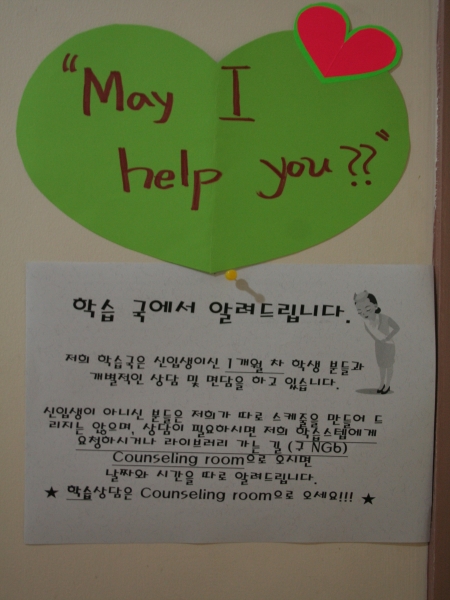 "May I
help you??"
학습 국에서 알려드립니다.
저희 학습국은 신임생이신 1개월 차 학생 분들과
개별적인 상담 및 면담을 하고 있습니다.
신임생이 아니신 분들은 저희가 따로 스케줄을 만들어 드
리지는 않으며, 상담이 필요하시면 저희 학습스텝에게
요청하시거나 라이브러리 가는 길 (구 NG6)
Counseling room으로 오시면
날짜와 시간을 따로 알려드립니다.
★ 학습상담은 Counseling room으로 오세요!!! ★